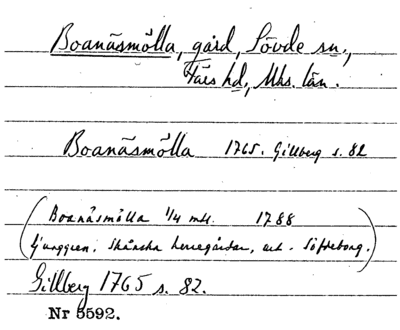 Boanäsmölla, gård, Sövde sn.,
Färs hd, Mhs. län.
Boanäsmölla 1765. Gillberg s. 82
(Boanäsmölla 1/4 mtl. 1788
Ljunggren, Skånska herregårdar, art. Söfdeborg.)
Gillberg 1765 s. 82.
Nr 5592.